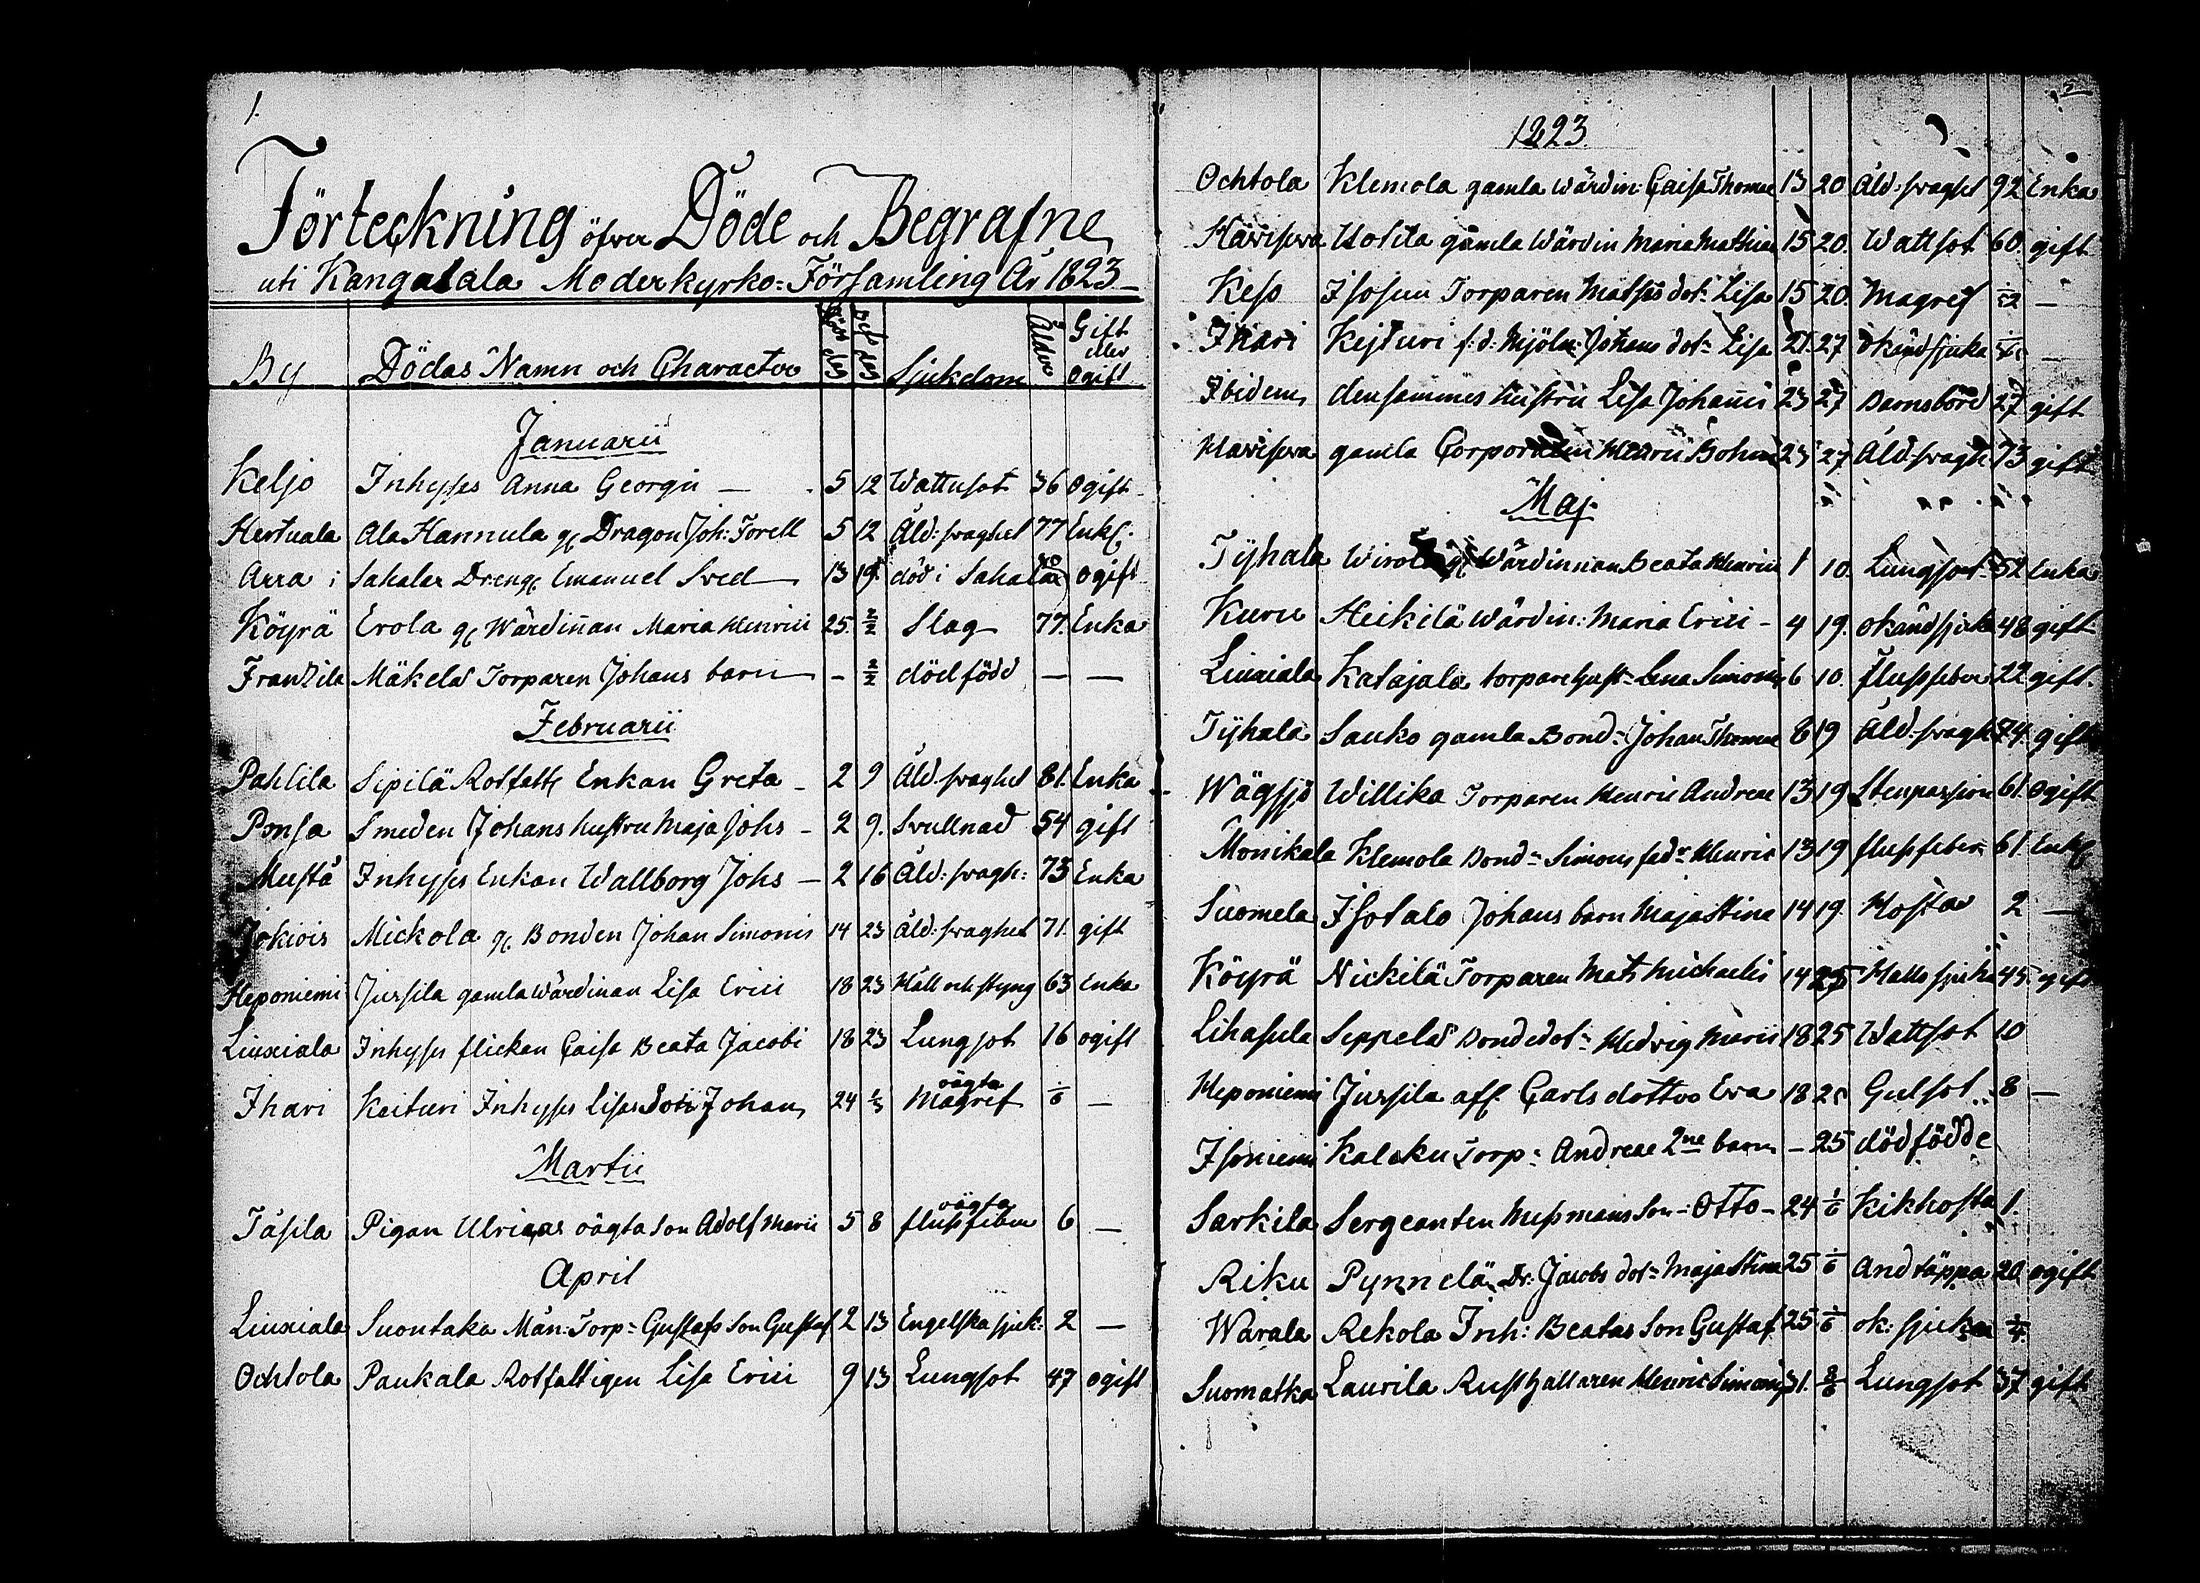 1.
Förteckning öfver Döde och Begrafne
uti Kangasala Moderkyrko=Församling År 1823
By Dödas Namn och Character Död den Beg den Sjukdom Ålder Gift eller Ogift
Januarii
Keljo Inhyses Anna Georgii — 5 12 Wattusot 36 Ogift
Hertuala Ala Hannula gl Dragon Joh: Forell 5 12 Åld: svaghet 77 Enkl.
Arra i Sahalax Dreng Emanuel Sved 13 19 död i Sahalax ogift
Köyrä Erola gl Wärdinnan Maria Henrici 25. 2/2 Slag 77. Enka
Franzila Mäkelä Torparen Johans barn — 2/2 död född — —
Februarii
Pahlila Sipilä Rotfatt Enkan Greta 2 9 Åld: svaghet 81. Enka
Ponsa Smeden Johans hustru Maja Johs 2 9. Svullnad 54 gift
Mustå Inhyses Enkan Wallborg Johs — 2 16 Åld: svagh: 73 Enka
Jokiois Mickola gl Bonden Johan Simonis 14 23 Åld: svaghet 71. gift
Heponiemi Jussila gamla Wärdinan Lisa Erici 18 23 Håll och styng 63 Enka
Liuxiala Inhyses flickan Caisa Beata Jacobi 18 23 Lungsot 16 ogift
Ihari Keituri Inhyses Lisas Johan 24 1/3 oägta Magref —
Martii
Täsila Pigan Ulricas oägta Son Adolf 5 8 oägta flussfeber 6 —
April
Liuxiala Suontaka Mån: Torp: Gustafs Son Gustaf 2 13 Engelska sjuk: 2 —
Ochtola Paukala Rotfattigen Lisa Erici 9 13 Lungsot 47 ogift
1823.
Ochtola Klemola gamla Wärdin: Caisa Thomae 13 20 Åld: svaghet 92 Enka
gamla Wärdin Maria Mathiae 15 20. Wattsot 60. gift
Keso Torparen Matses dot: Lisa 15 20. Magref —
Ihari Kejturi f: d: Mjöln: Johans dot: Lisa 21. 27 Okänd sjuka —
Ibidem densammes hustru Lisa Johannis 23 27 Barnsbörd 27 gift
gamla Corporalen Bohm 23 27 Åld: svagh: 73 gift
Maj.
Tyhala Wirola gl Wärdinnan Beata Henrici 1 10. Lungsot 52 Enka
Kuru Heikilä Wärdin: Maria Erici – 4 19. Okänd sjuka 48 gift
Liuxiala Katajala torpare hust: Lena Simonis 6 10. flussfeber 22 gift.
Tyhala Sauko gamla Bond: Johan Thomae 8 19 Åld: svagh 74. gift
Wägsjö Willika Torparen Henric Andreae 13 19 Stenpassion 61. Ogift
Monikala Klemola Bond: Simons fadr Henric 13 19 flussfeber 61. Enkl
Suomela Isotalo Johans barn Maja Stina 14 19. Hosta 2 —
Köyrä Nickilä Torparen Mats Michaelis 14 25 Halls sjuka 45. gift
Lihasula Seppelä Bonde dot: Hedvig 18 25 Wattsot 10
Heponiemi Jussila afl. Carls dotter Eva 18 25 Gulsot 8 —
Isoniemi Kaleku Torp: Andreae 2ne barn — 25 dödfödde
Sarkila Sergeanten Husmans Son: Otto – 24 1/6 Kikhosta 1.
Riku Pynnelä Dr: Jacobs dot: Maja Stina 25 1/6 Andtäppa 20 ogift
Warala Rekola Inh: Beatas Son Gustaf 25 1/6 ok: sjuka
Suomatka Laurila Rusthållaren Henric Simonis 31. 8/6 Lungsot 37 gift